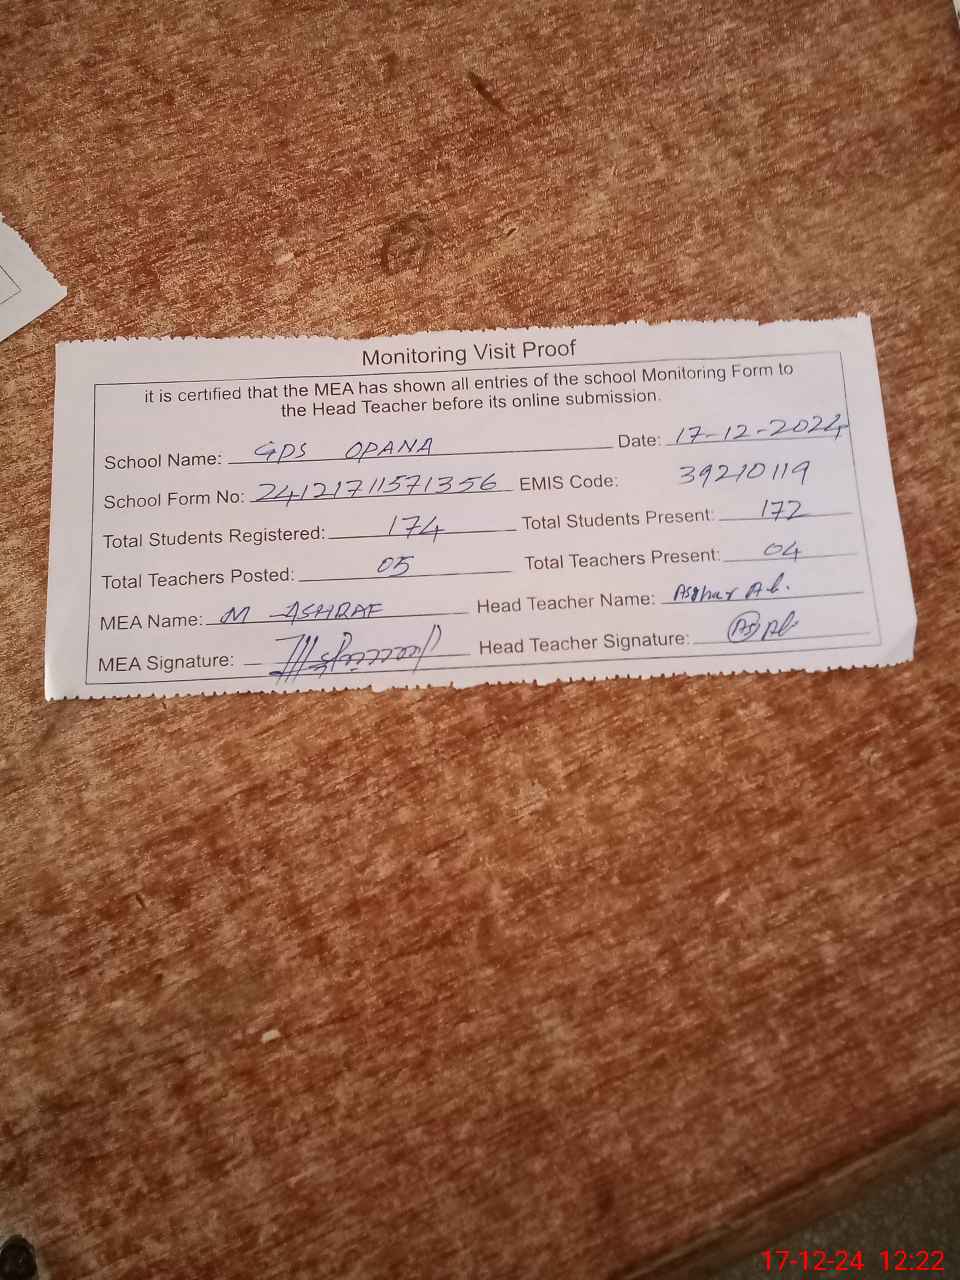 Monitoring Visit Proof
it is certified that the MEA has shown all entries of the school Monitoring Form to
the Head Teacher before its online submission.
School Name: GPS OPANA Date: 17-12-2024
School Form No: 24121711571356 EMIS Code: 39210119
Total Students Registered: 174 Total Students Present: 172
Total Teachers Posted: 05 Total Teachers Present: 04
MEA Name: M ASHRAF Head Teacher Name:
MEA Signature: Head Teacher Signature:
17-12-24 12:22